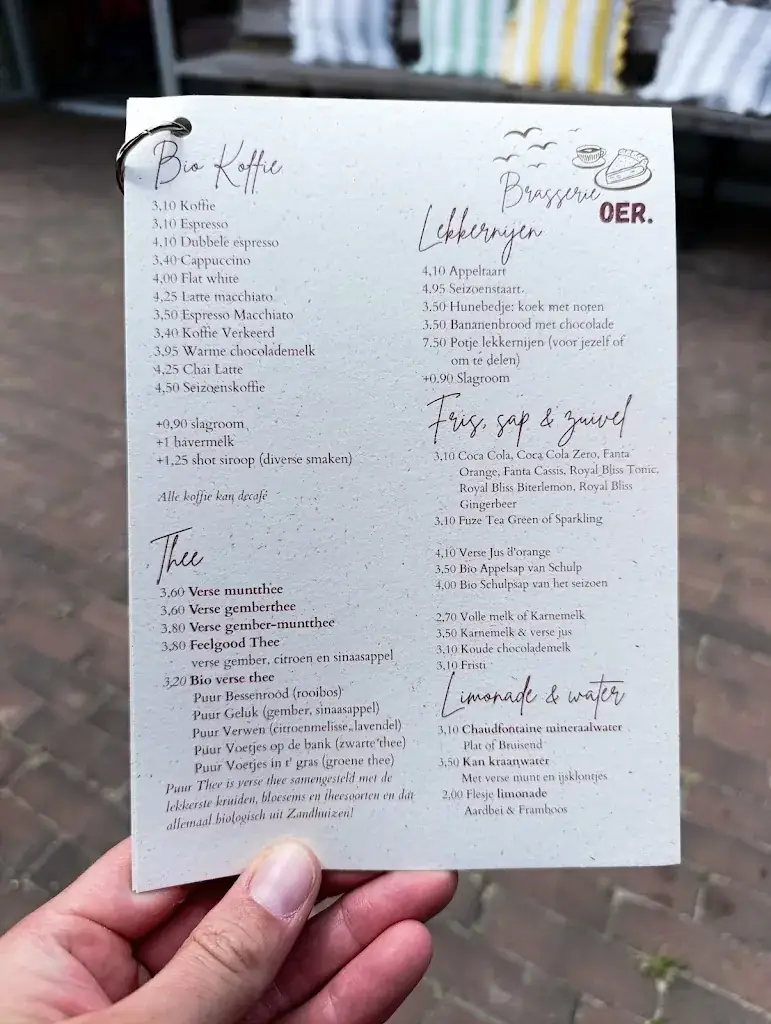 Bio Koffie
3,10 Koffie
3,10 Espresso
4,10 Dubbele espresso
3,40 Cappuccino
4,00 Flat white
4,25 Latte macchiato
3,50 Espresso Macchiato
3,40 Koffie Verkeerd
3,95 Warme chocolademelk
4,25 Chai Latte
4,50 Seizoenskoffie
+0,90 slagroom
+1 havermelk
+1,25 shot siroop (diverse smaken)
Alle koffie kan decafé
Thee
3,60 Verse muntthee
3,60 Verse gemberthee
3,80 Verse gember-muntthee
3,80 Feelgood Thee
verse gember, citroen en sinaasappel
3,20 Bio verse thee
Puur Bessenrood (rooibos)
Puur Geluk (gember, sinaasappel)
Puur Verwen (citroenmelisse, lavendel)
Puur Voetjes op de bank (zwarte thee)
Puur Voetjes in t' gras (groene thee)
Puur Thee is verse thee samengesteld met de
lekkerste kruiden, bloesems en theesoorten en dat
allemaal biologisch uit Zandhuizen!
Brasserie
OER.
Lekkernijen
4,10 Appeltaart
4,95 Seizoenstaart.
3,50 Hunebedje: koek met noten
3,50 Bananenbrood met chocolade
7,50 Potje lekkernijen (voor jezelf of
om te delen)
+0,90 Slagroom
Fris, sap & zuivel
3,10 Coca Cola, Coca Cola Zero, Fanta
Orange, Fanta Cassis, Royal Bliss Tonic,
Royal Bliss Biterlemon, Royal Bliss
Gingerbeer
3,10 Fuze Tea Green of Sparkling
4,10 Verse Jus d'orange
3,50 Bio Appelsap van Schulp
4,00 Bio Schulpsap van het seizoen
2,70 Volle melk of Karnemelk
3,50 Karnemelk & verse jus
3,10 Koude chocolademelk
3,10 Fristi
Limonade & water
3,10 Chaudfontaine mineraalwater
Plat of Bruisend
3,50 Kan kraanwater
Met verse munt en ijsklontjes
2,00 Flesje limonade
Aardbei & Framboos